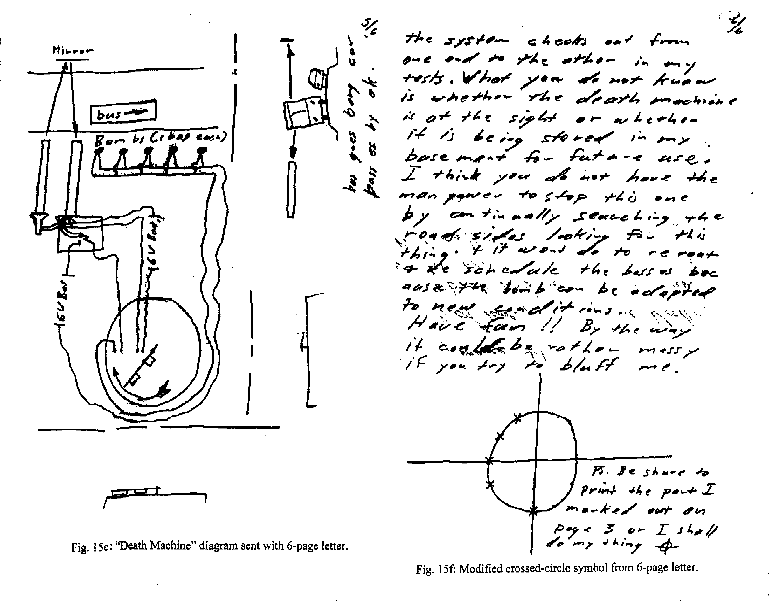 5/6
Mirror
bus
Bombs (1 bag each)
6V Bat
6V Bat
bus goes bomg car
pass es by ok.
2/6
the system checks out from
one end to the other in my
tests. What you do not know
is whether the death machine
is at the sight or whether
it is being stored in my
basement for future use.
I think you do not have the
man power to stop this one
by continually searching the
road sides looking for this
thing. & it wont do to re roat
& re schedule the busses bec
ause the bomb can be adapted
to new conditions.
Have fun !! By the way
it could be rather messy
if you try to bluff me.
PS. Be shure to
print the part I
marked out on
page 3 or I shall
do my thing
Fig. 15e: "Death Machine" diagram sent with 6-page letter.
Fig. 15f: Modified crossed-circle symbol from 6-page letter.